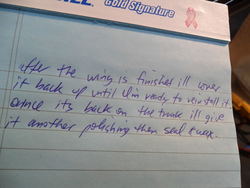 Gold Signature
after the wing is finished ill cover
it back up until I'm ready to reinstall it.
once its back on the trunk ill give
it another polishing then seal & wax.